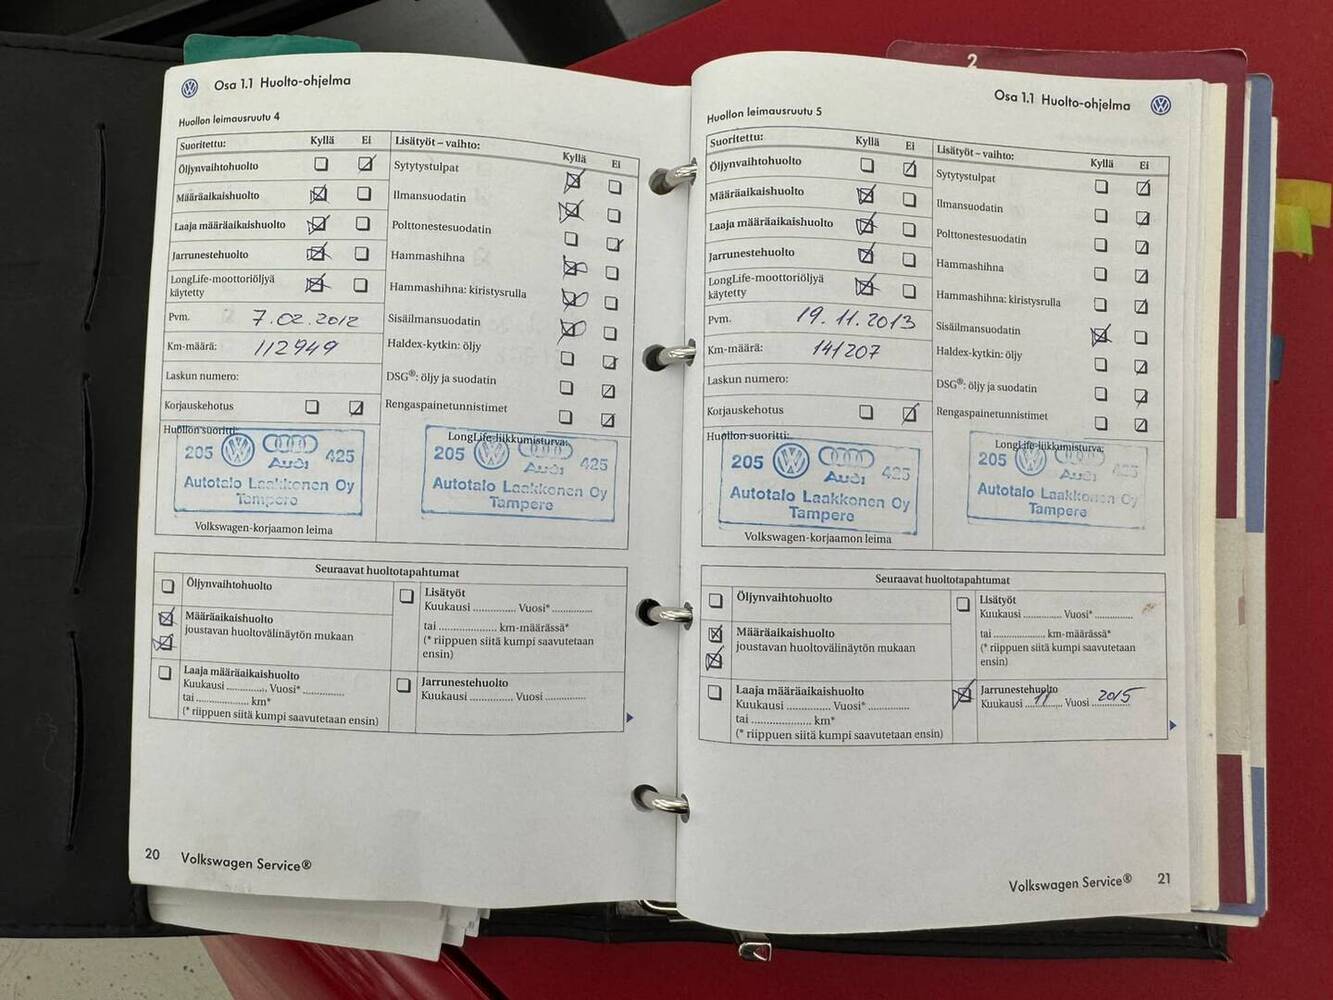 Osa 1.1 Huolto-ohjelma
Huollon leimausruutu 4
Suoritettu: Kyllä Ei
Öljynvaihtohuolto
Määräaikaishuolto
Laaja määräaikaishuolto
Jarrunestehuolto
LongLife-moottoriöljyä
käytetty
Pvm. 7.02.2012
Km-määrä: 112949
Laskun numero:
Korjauskehotus
Huollon suoritti:
205 425
Audi
Autotalo Laakkonen Oy
Tampere
Volkswagen-korjaamon leima
Lisätyöt – vaihto: Kyllä Ei
Sytytystulpat
Ilmansuodatin
Polttonestesuodatin
Hammashihna
Hammashihna: kiristysrulla
Sisäilmansuodatin
Haldex-kytkin: öljy
DSG®: öljy ja suodatin
Rengaspainetunnistimet
LongLife-liikkumisturva:
205 425
Audi
Autotalo Laakkonen Oy
Tampere
Seuraavat huoltotapahtumat
Öljynvaihtohuolto
Määräaikaishuolto
joustavan huoltovälinäytön mukaan
Laaja määräaikaishuolto
Kuukausi .............. Vuosi* ..............
tai .................... km*
(* riippuen siitä kumpi saavutetaan ensin)
Lisätyöt
Kuukausi .............. Vuosi* ..............
tai .................... km-määrässä*
(* riippuen siitä kumpi saavutetaan
ensin)
Jarrunestehuolto
Kuukausi .............. Vuosi ..............
20 Volkswagen Service®
2
Osa 1.1 Huolto-ohjelma
Huollon leimausruutu 5
Suoritettu: Kyllä Ei
Öljynvaihtohuolto
Määräaikaishuolto
Laaja määräaikaishuolto
Jarrunestehuolto
LongLife-moottoriöljyä
käytetty
Pvm. 19.11.2013
Km-määrä: 141207
Laskun numero:
Korjauskehotus
Huollon suoritti:
205 425
Audi
Autotalo Laakkonen Oy
Tampere
Volkswagen-korjaamon leima
Lisätyöt – vaihto: Kyllä Ei
Sytytystulpat
Ilmansuodatin
Polttonestesuodatin
Hammashihna
Hammashihna: kiristysrulla
Sisäilmansuodatin
Haldex-kytkin: öljy
DSG®: öljy ja suodatin
Rengaspainetunnistimet
LongLife-liikkumisturva:
205 425
Audi
Autotalo Laakkonen Oy
Tampere
Seuraavat huoltotapahtumat
Öljynvaihtohuolto
Määräaikaishuolto
joustavan huoltovälinäytön mukaan
Laaja määräaikaishuolto
Kuukausi .............. Vuosi* ..............
tai .................... km*
(* riippuen siitä kumpi saavutetaan ensin)
Lisätyöt
Kuukausi .............. Vuosi* ..............
tai .................... km-määrässä*
(* riippuen siitä kumpi saavutetaan
ensin)
Jarrunestehuolto
Kuukausi 11 Vuosi 2015
Volkswagen Service® 21